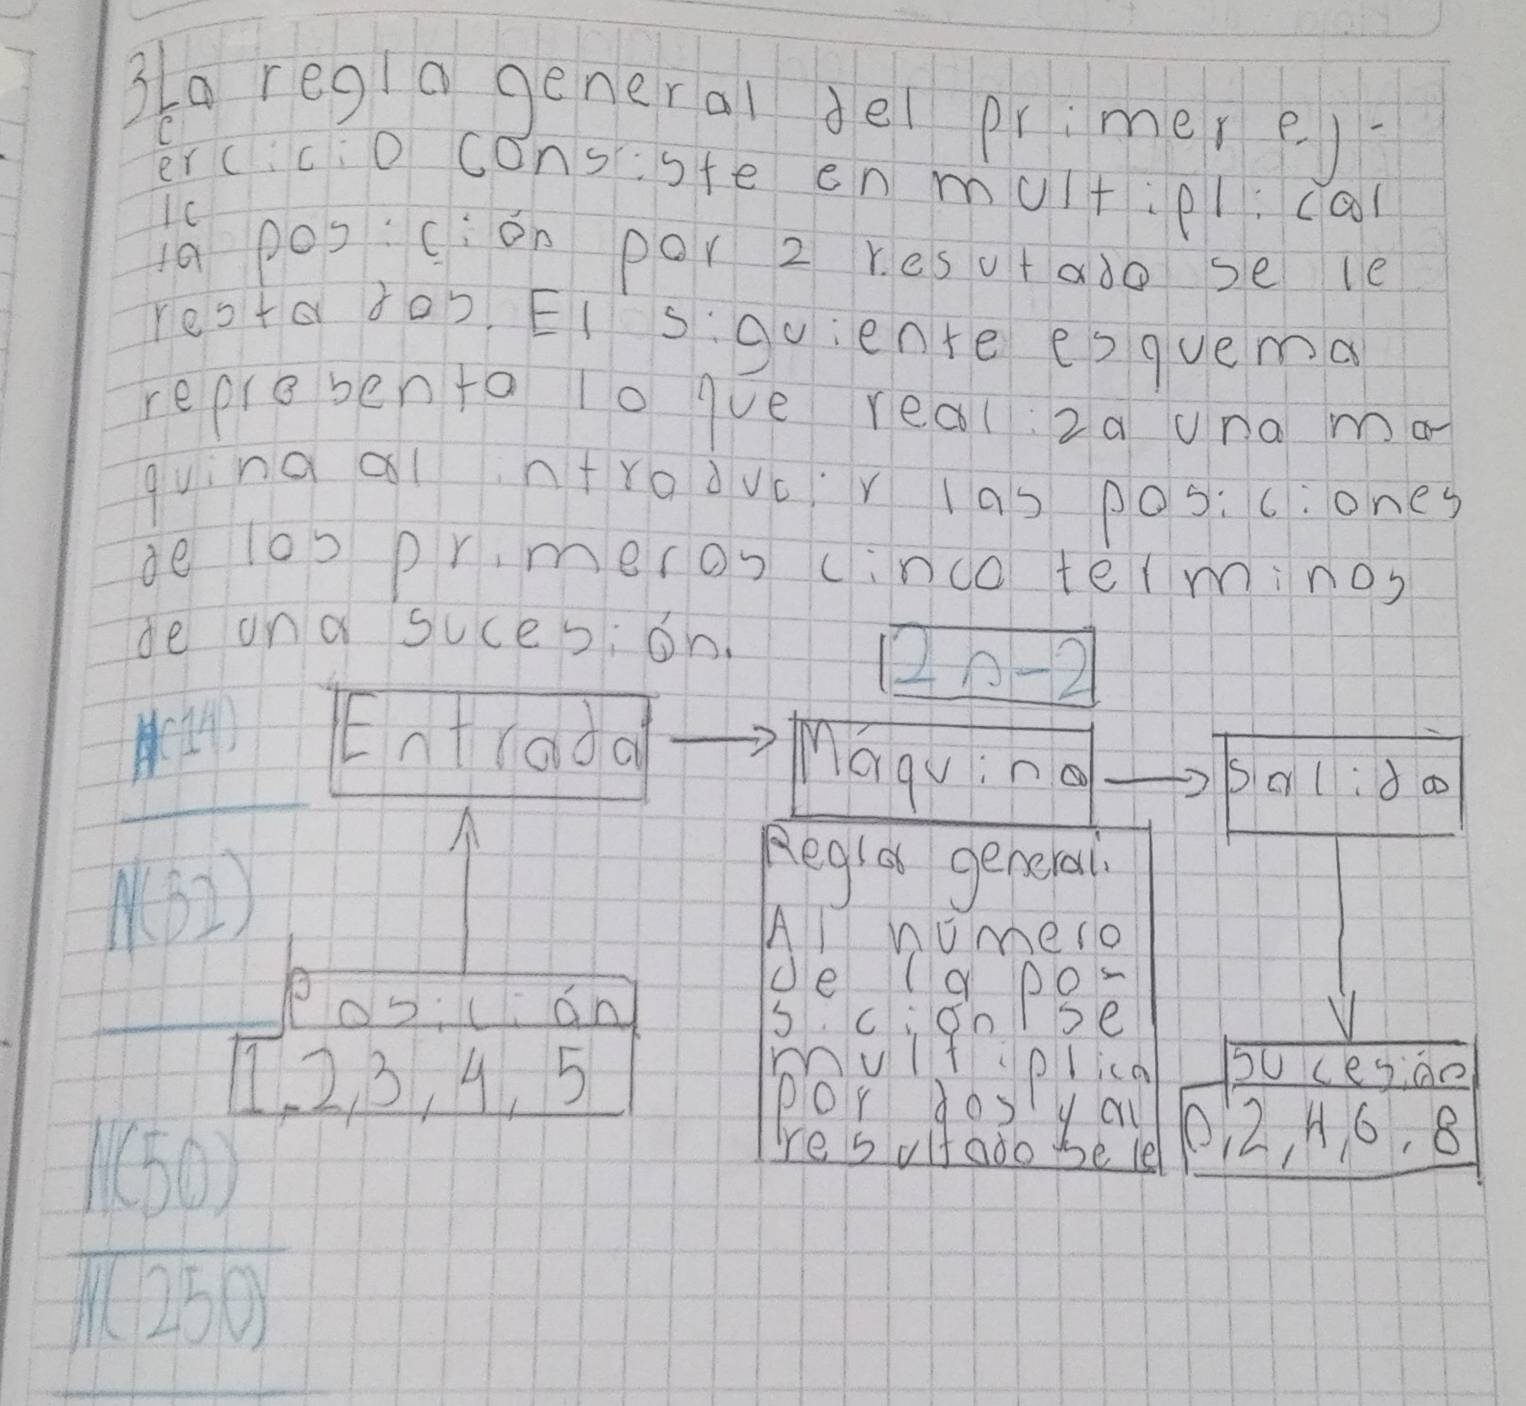 3 La regla general del primer ej-
ercicio consiste en multiplicar
la posición por 2 resutado se le
resta dos. El siguiente esquema
representa lo que realiza una ma
quina al introducir las posiciones
de los primeros cinco terminos
de una sucesión.
2n-2
N(14)
Entrada
Máquina
Salida
Regla general:
Al número
de la po-
sición se
multiplica
por dos y al
resultado se le
N(32)
Posición
1,2,3,4,5
Sucesión
0,2,4,6,8
N(50)
N(250)